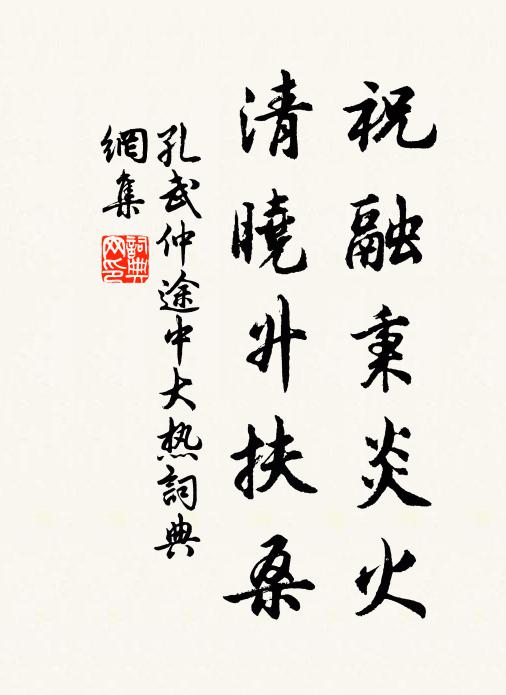 祝融秉炎火
清曉升扶桑
孔武仲途中大热詞典
網集
詞典网印